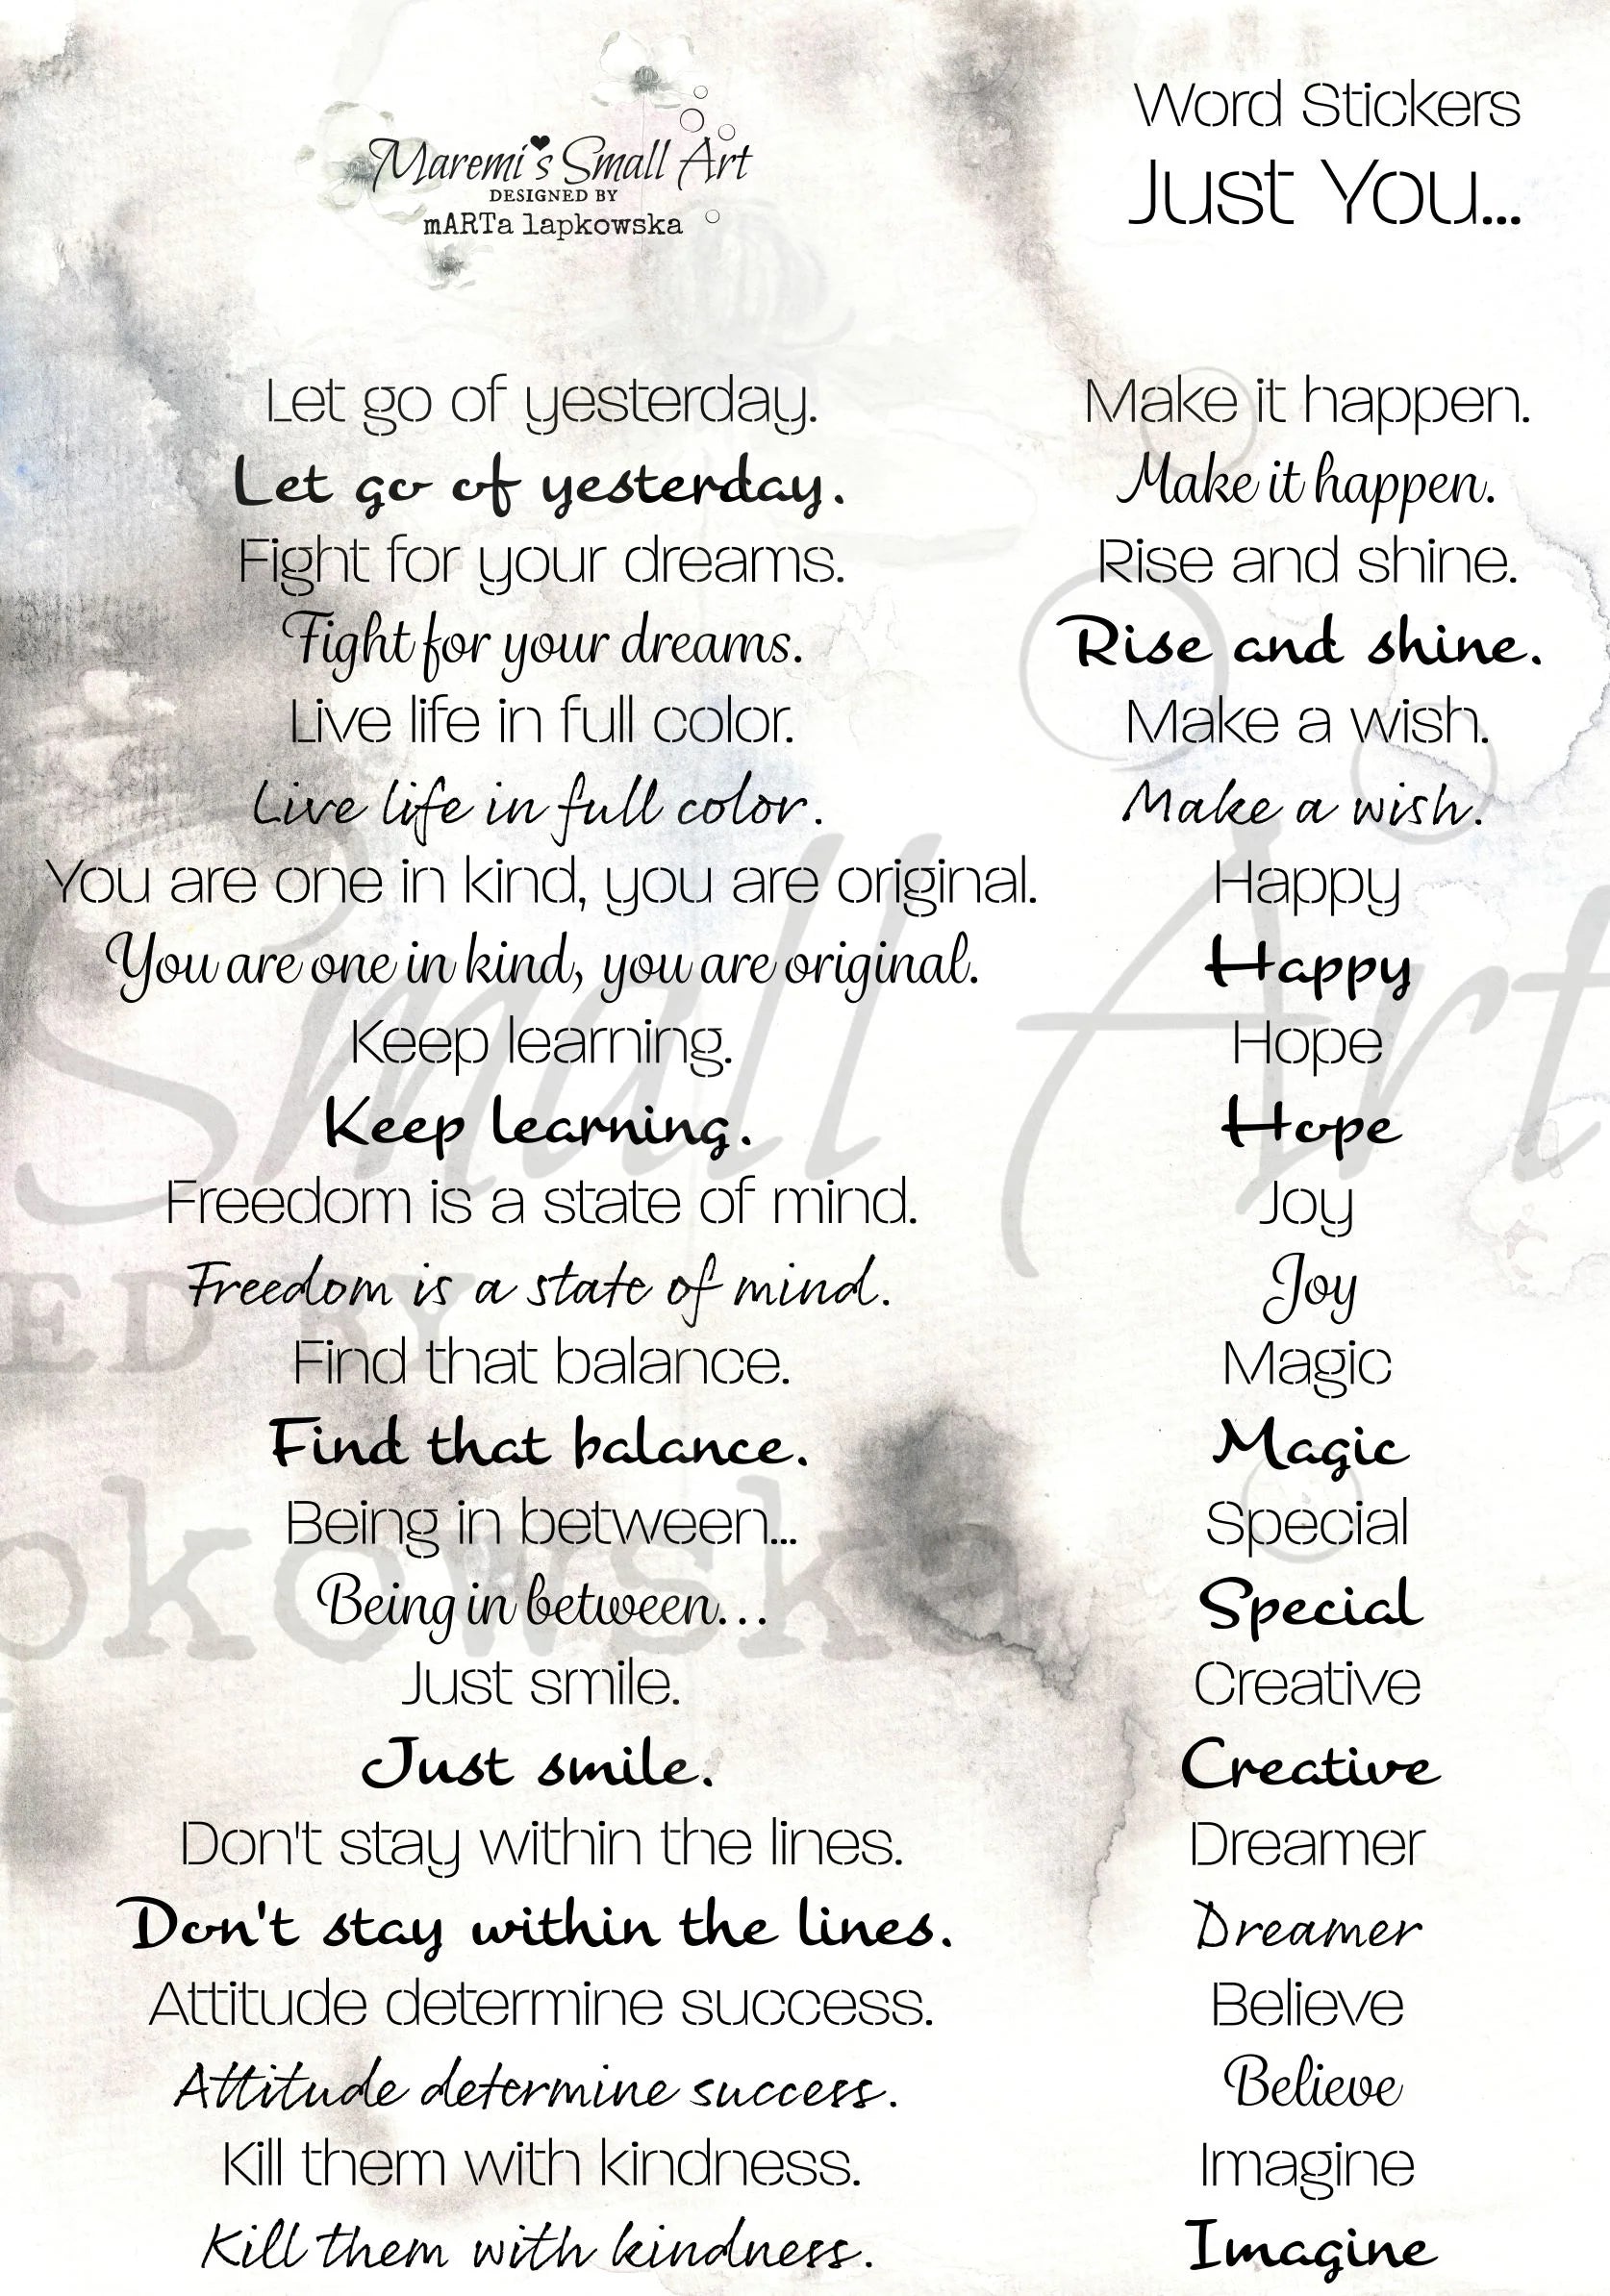 Maremi's Small Art
DESIGNED BY
mARTa lapkowska
Word Stickers
Just You...
Let go of yesterday.
Let go of yesterday.
Fight for your dreams.
Fight for your dreams.
Live life in full color.
Live life in full color.
You are one in kind, you are original.
You are one in kind, you are original.
Keep learning.
Keep learning.
Freedom is a state of mind.
Freedom is a state of mind.
Find that balance.
Find that balance.
Being in between...
Being in between...
Just smile.
Just smile.
Don't stay within the lines.
Don't stay within the lines.
Attitude determine success.
Attitude determine success.
Kill them with kindness.
Kill them with kindness.
Make it happen.
Make it happen.
Rise and shine.
Rise and shine.
Make a wish.
Make a wish.
Happy
Happy
Hope
Hope
Joy
Joy
Magic
Magic
Special
Special
Creative
Creative
Dreamer
Dreamer
Believe
Believe
Imagine
Imagine
Small Art
ED BY
pkowska